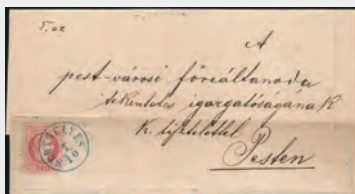 A
pest-városi főreáltanoda
tekintetes igazgatóságának
k. tisztelettel
Pesten